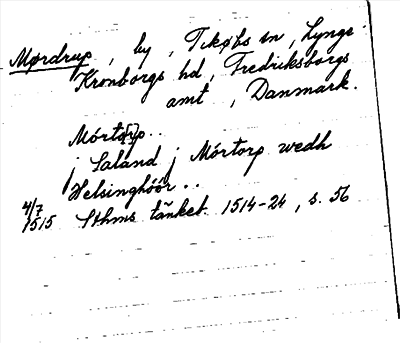 Mørdrup, by, Tikøbs sn, Lynge-
Kronborgs hd, Fredriksborgs
amt, Danmark.
Mórtorp..
j Saland j Mórtorp wedh
Helsinghöör..
4/7
1515 Sthms tänkeb. 1514-24, s. 56